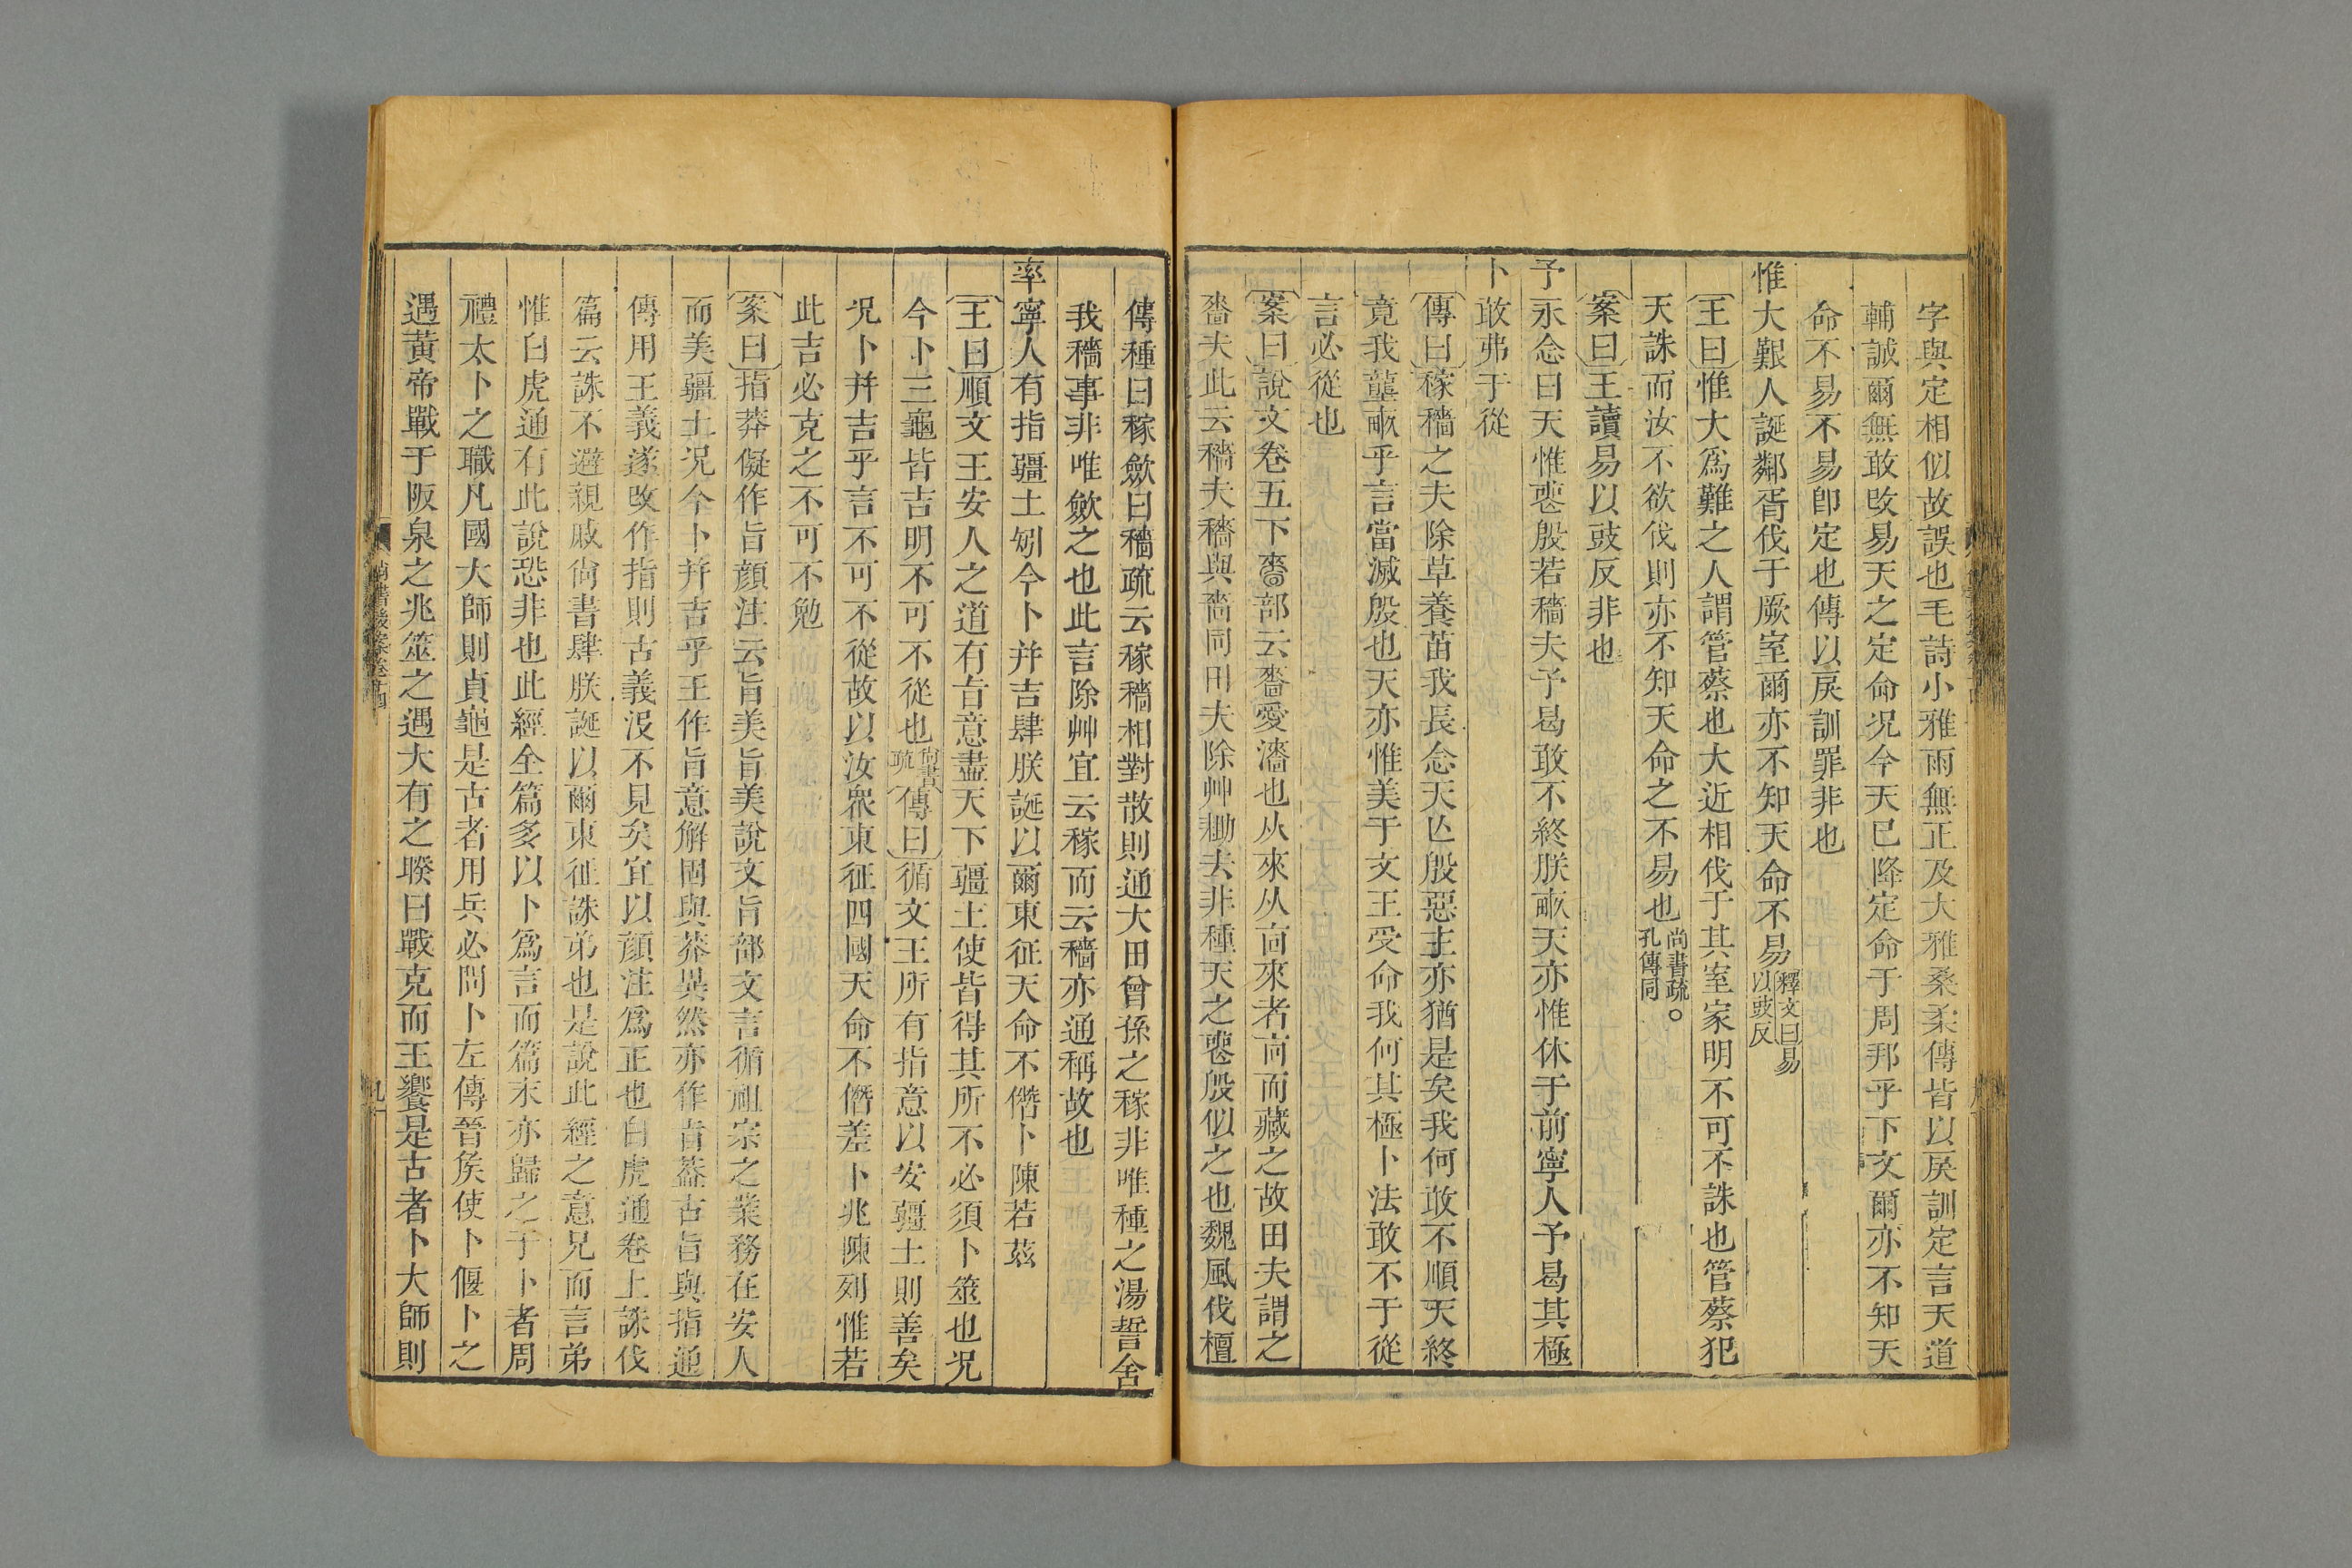 字與定相似故誤也毛詩小雅雨無正及大雅桑柔傳皆以戾訓定言天道
輔誠爾無敢改易天之定命况今天已降定命于周邦乎下文爾亦不知天
命不易不易卽定也傳以戾訓罪非也
惟大艱人誕鄰胥伐于厥室爾亦不知天命不易釋文曰易以豉反
王曰惟大爲難之人謂管蔡也大近相伐于其室家明不可不誅也管蔡犯
天誅而汝不欲伐則亦不知天命之不易也尚書疏。孔傳同
案曰王讀易以豉反非也
予永念曰天惟喪殷若穡夫予曷敢不終朕畞天亦惟休于前寧人予曷其極
卜敢弗于從
傳曰稼穡之夫除草養苗我長念天亾殷惡主亦猶是矣我何敢不順天終
竟我壟畞乎言當滅殷也天亦惟美于文王受命我何其極卜法敢不于從
言必從也
案曰說文卷五下嗇部云嗇愛濇也从來从㐭來者㐭而藏之故田夫謂之
嗇夫此云穡夫穡與嗇同田夫除艸耡去非種天之喪殷似之也魏風伐檀
傳種曰稼斂曰穡疏云稼穡相對散則通大田曾孫之稼非唯種之湯誓舍
我穡事非唯斂之也此言除艸宜云稼而云穡亦通稱故也
率寧人有指疆土矧今卜并吉肆朕誕以爾東征天命不僭卜陳若茲
王曰順文王安人之道有旨意盡天下疆土使皆得其所不必須卜筮也况
今卜三龜皆吉明不可不從也尚書疏傳曰循文王所有指意以安疆土則善矣
况卜并吉乎言不可不從故以汝衆東征四國天命不僭差卜兆陳列惟若
此吉必克之不可不勉
案曰指莽儗作旨顏注云旨美旨美說文旨部文言循祖宗之業務在安人
而美疆土况今卜并吉乎王作旨意解固與莽異然亦作旨葢古旨與指通
傳用王義遂改作指則古義沒不見矣宜以顏注爲正也白虎通卷上誅伐
篇云誅不避親戚尙書肆朕誕以爾東征誅弟也是說此經之意兄而言弟
惟白虎通有此說恐非也此經全篇多以卜爲言而篇末亦歸之于卜者周
禮太卜之職凡國大師則貞龜是古者用兵必問卜左傳晉矦使卜偃卜之
遇黃帝戰于阪泉之兆筮之遇大有之睽曰戰克而王饗是古者卜大師則
尚書後案卷十四
九